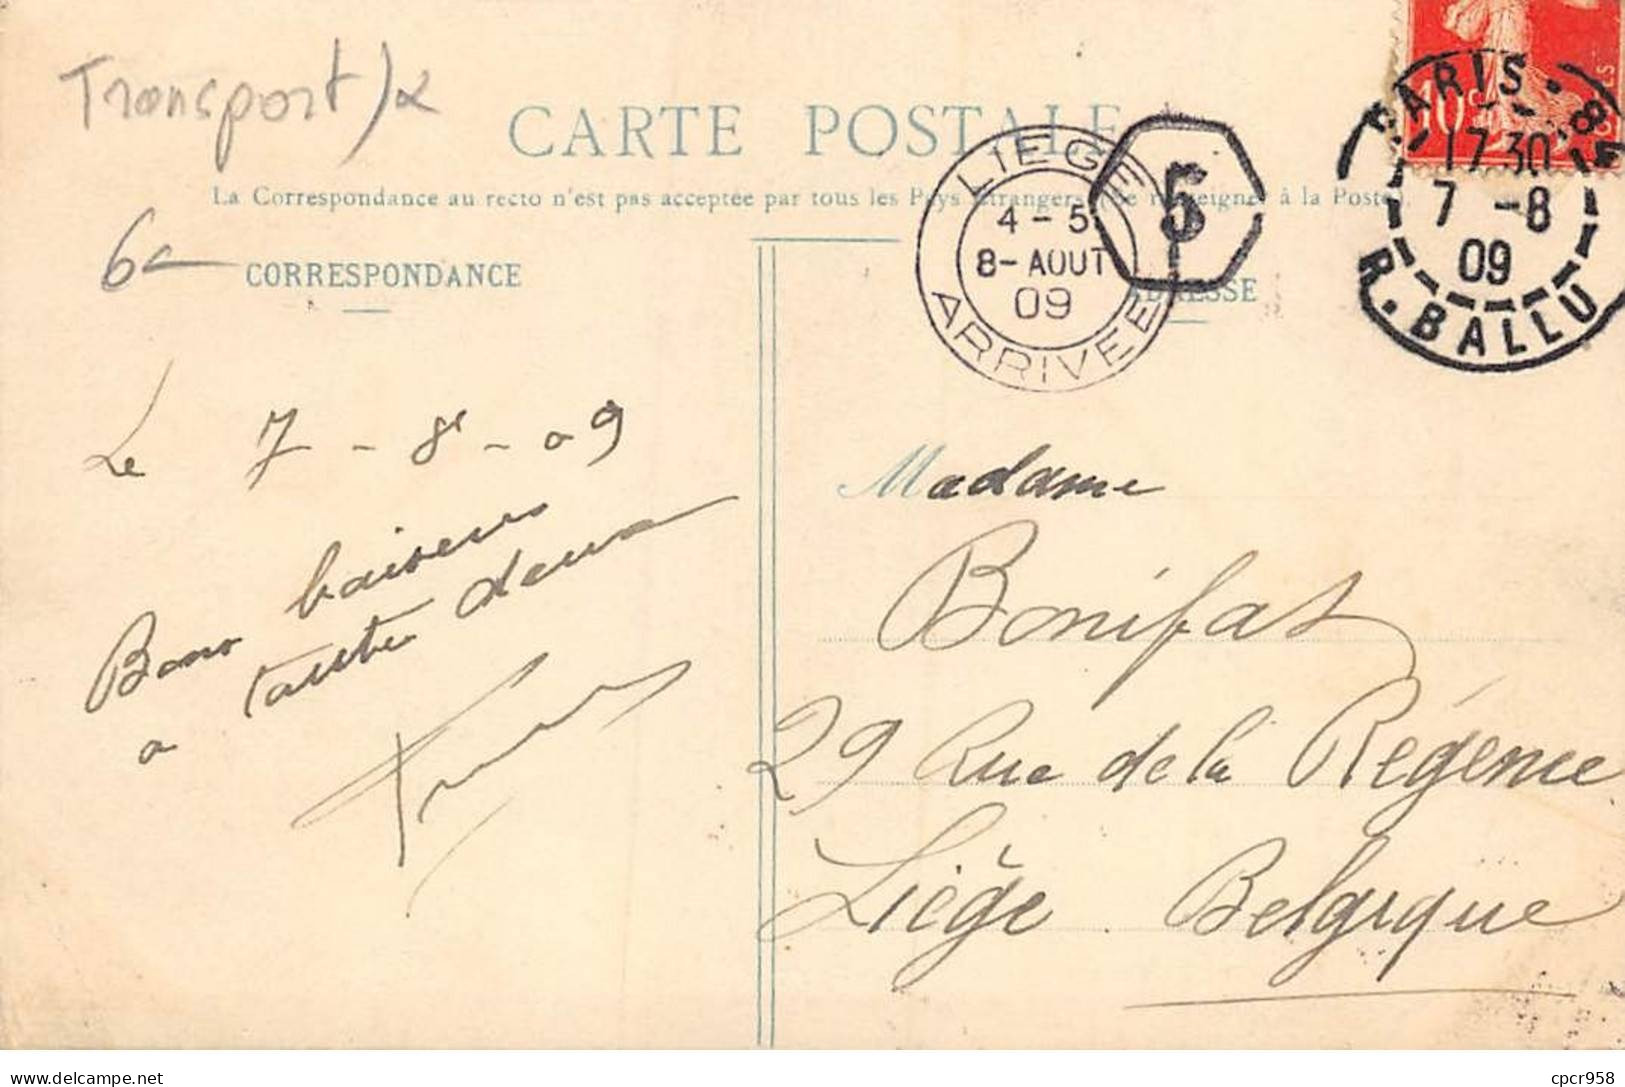 Transport)
CARTE POSTALE
La Correspondance au recto n'est pas acceptée par tous les Pays Étrangers (Se renseigner à la Poste).
6
CORRESPONDANCE
ADRESSE
LIEGE
4-5
8-AOUT
09
ARRIVEE
5
10c
PARIS · 84
17 30
7 -8
09
R. BALLU
Le 7 - 8 - 09
Bons baisers
a toute deux
Madame
Bonifas
29 Rue de la Régence
Liège Belgique
delcampe.net
cpcr958